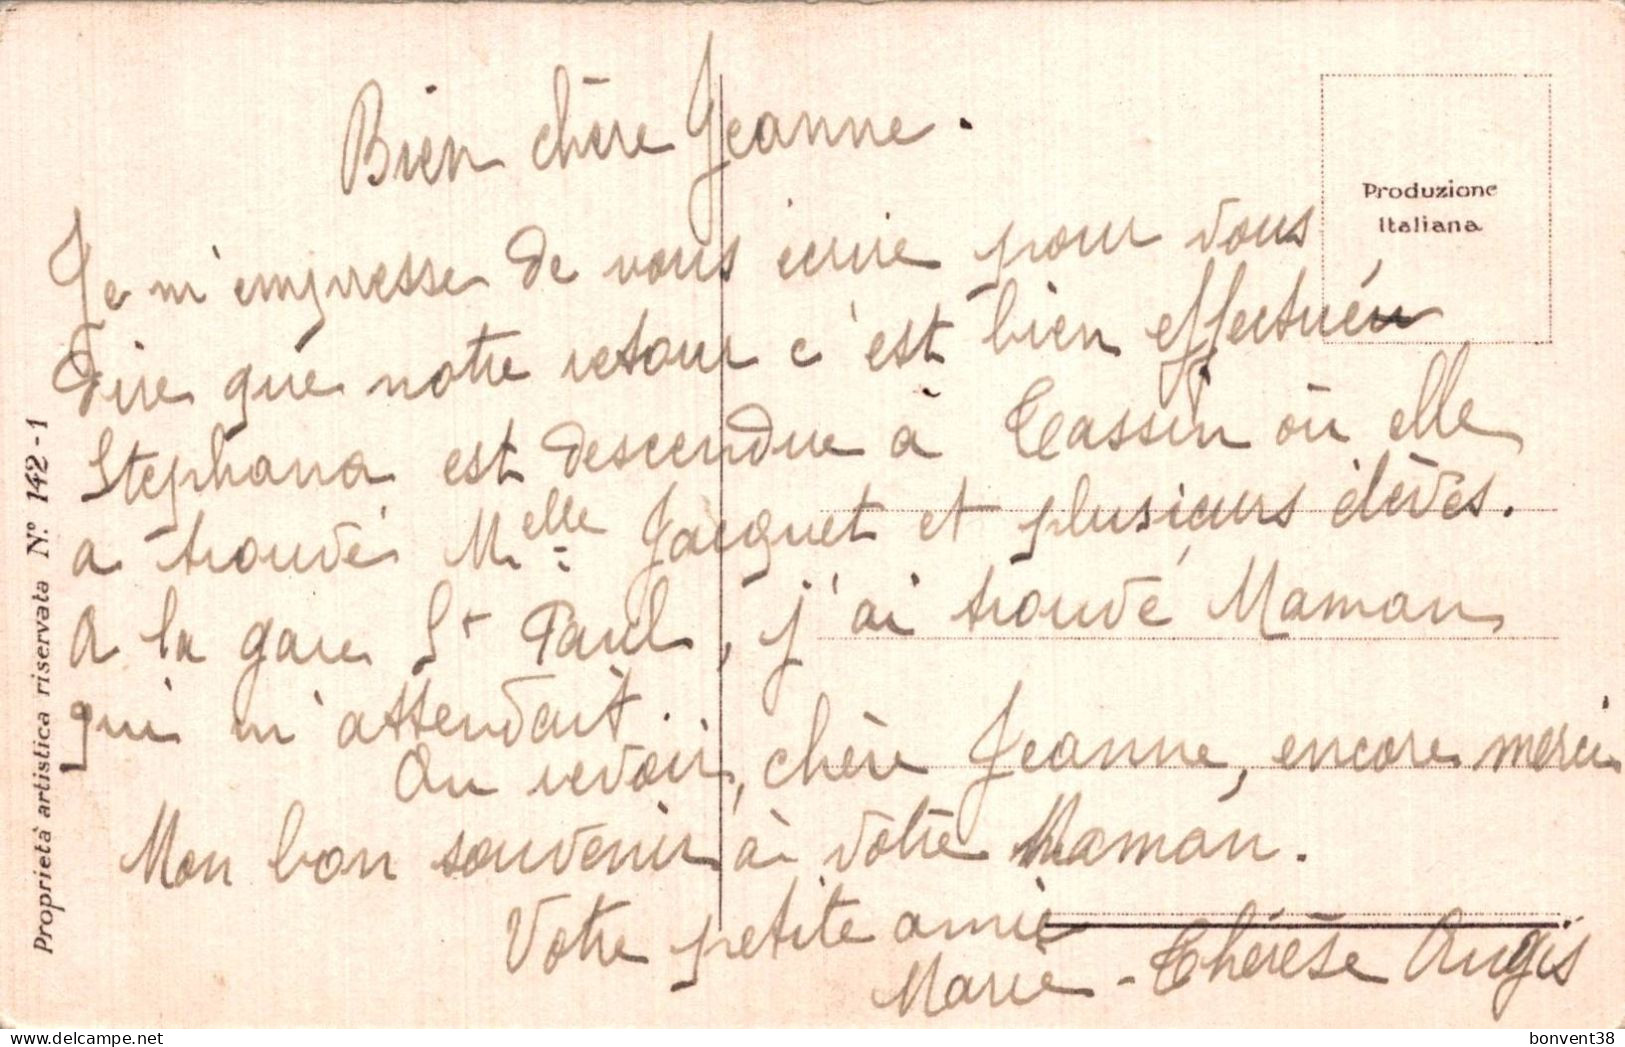 Bien chère Jeanne.
Produzione
Italiana
Je m'empresse de vous écrire pour vous
dire que notre retour c'est bien effectué
Stephana est descendue à Tassin où elle
a trouvé Melle Jacquet et plusieurs élèves.
A la gare St Paul, j'ai trouvé Maman
qui m'attendait.
Au revoir, chère Jeanne, encore merci
Mon bon souvenir à vôtre Maman.
Votre petite amie
Marie-Thérèse Augis
Proprietà artistica riservata N.º 142-1
bonvent38